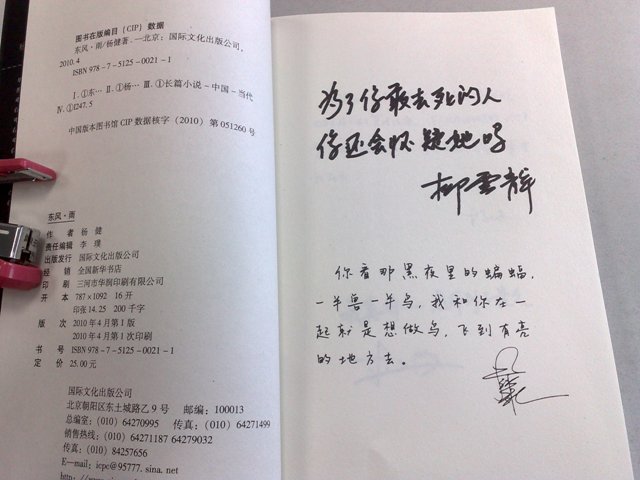 图书在版编目（CIP）数据
东风·雨/杨健著.—北京：国际文化出版公司，
2010.4
ISBN 978-7-5125-0021-1
Ⅰ.①东… Ⅱ.①杨… Ⅲ.①长篇小说－中国－当代
Ⅳ.①I247.5
中国版本图书馆CIP数据核字（2010）第051260号
东风·雨
作 者 杨 健
责任编辑 李 璞
出版发行 国际文化出版公司
经 销 全国新华书店
印 刷 三河市华润印刷有限公司
开 本 787×1092 16开
印张14.25 200千字
版 次 2010年4月第1版
2010年4月第1次印刷
书 号 ISBN 978-7-5125-0021-1
定 价 25.00元
国际文化出版公司
北京朝阳区东土城路乙9号 邮编：100013
总编室：（010）64270995 传真：（010）64271499
销售热线：（010）64271187 64279032
传真：（010）84257656
E—mail：icpc@95777.sina.net
为了你敢去死的人
你还会怀疑她吗
柳云龙
你看那黑夜里的蝙蝠，
一半兽一半鸟，我和你在一
起就是想做鸟，飞到有亮
的地方去。